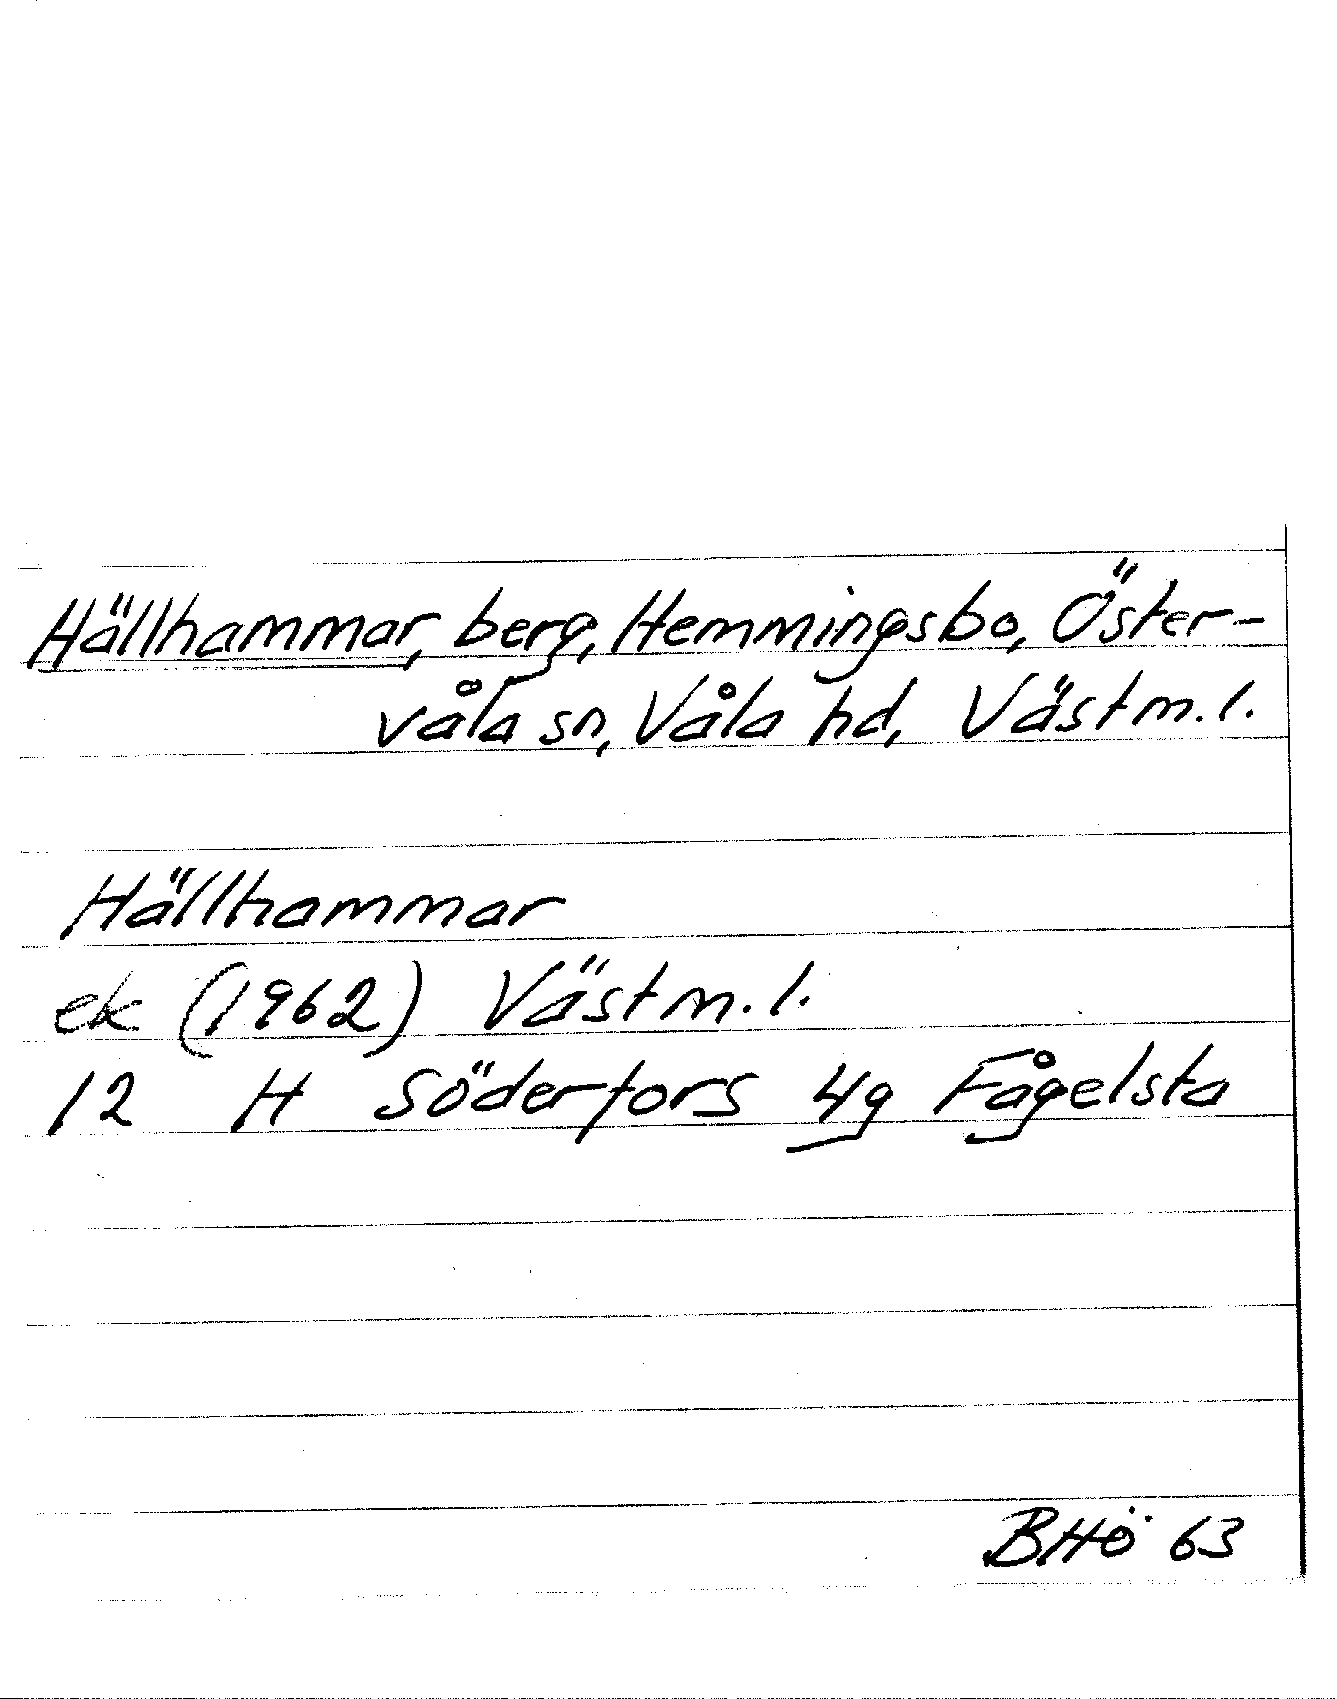 Hällhammar, berg, Hemmingsbo, Öster-
våla sn, Våla hd, Västm.l.
Hällhammar
ek (1962) Västm.l.
12 H Söderfors 4g Fågelsta
BHö 63